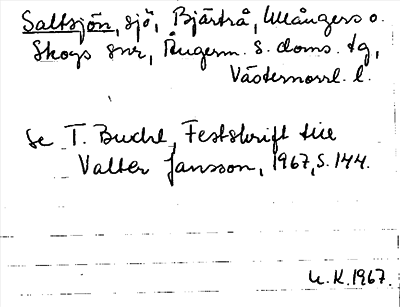 Saltsjön, sjö, Bjärtrå, Ullångers o.
Skogs snr, Ångerm. s. doms. tg,
Västernorrl. l.
Se T. Bucht, Festskrift till
Valter Jansson, 1967, s. 144.
U.K. 1967.